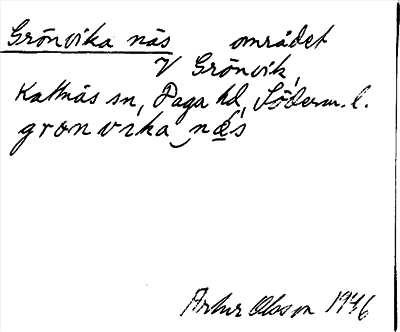 Grönvika näs området
V Grönvik,
Kattnäs sn, Daga hd, Söderm. l.
gronvika näs
Artur Olsson 1946